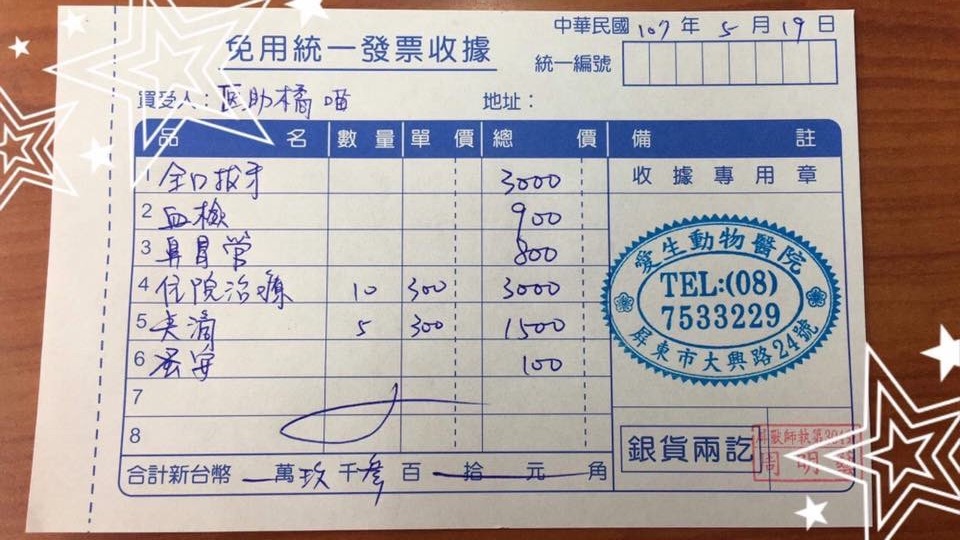 中華民國 107 年 5 月 19 日
免用統一發票收據
統一編號
買受人：醫助橘喵 地址：
品名 數量 單價 總價 備註
1 全口拔牙 3000
收據專用章
2 血檢 900
3 鼻胃管 800
4 住院治療 10 300 3000
5 美滴 5 300 1500
6 蚤安 100
7
8
愛生動物醫院
TEL:(08)
7533229
屏東市大興路24號
銀貨兩訖
合計新台幣 萬玖千參百 拾 元 角